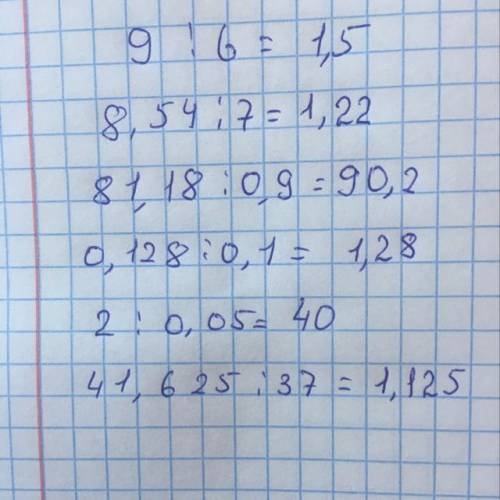 9 : 6 = 1,5
8,54 : 7 = 1,22
81,18 : 0,9 = 90,2
0,128 : 0,1 = 1,28
2 : 0,05 = 40
41,625 : 37 = 1,125